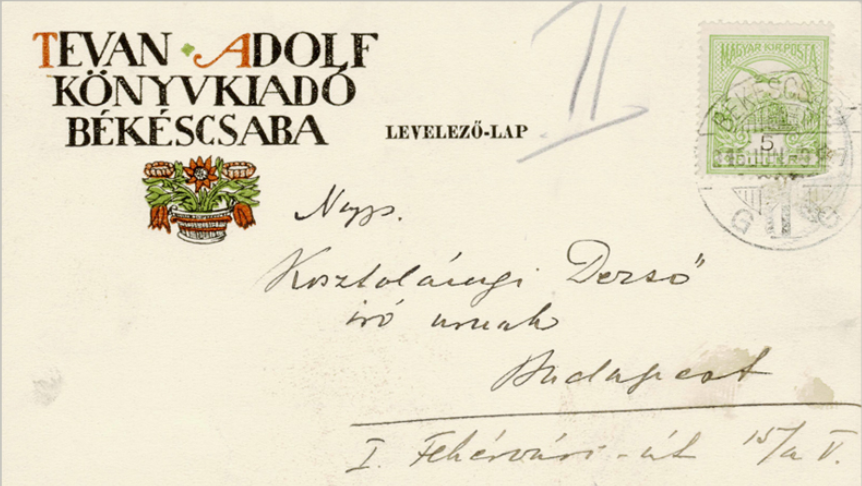 TEVAN · ADOLF
KÖNYVKIADÓ
BÉKÉSCSABA
LEVELEZŐ-LAP
II
MAGYAR KIR. POSTA
BÉKÉSCS
5
JUN
Nagys.
Kosztolányi Dezső
író urnak
Budapest
I. Fehérvári-út 15/a V.